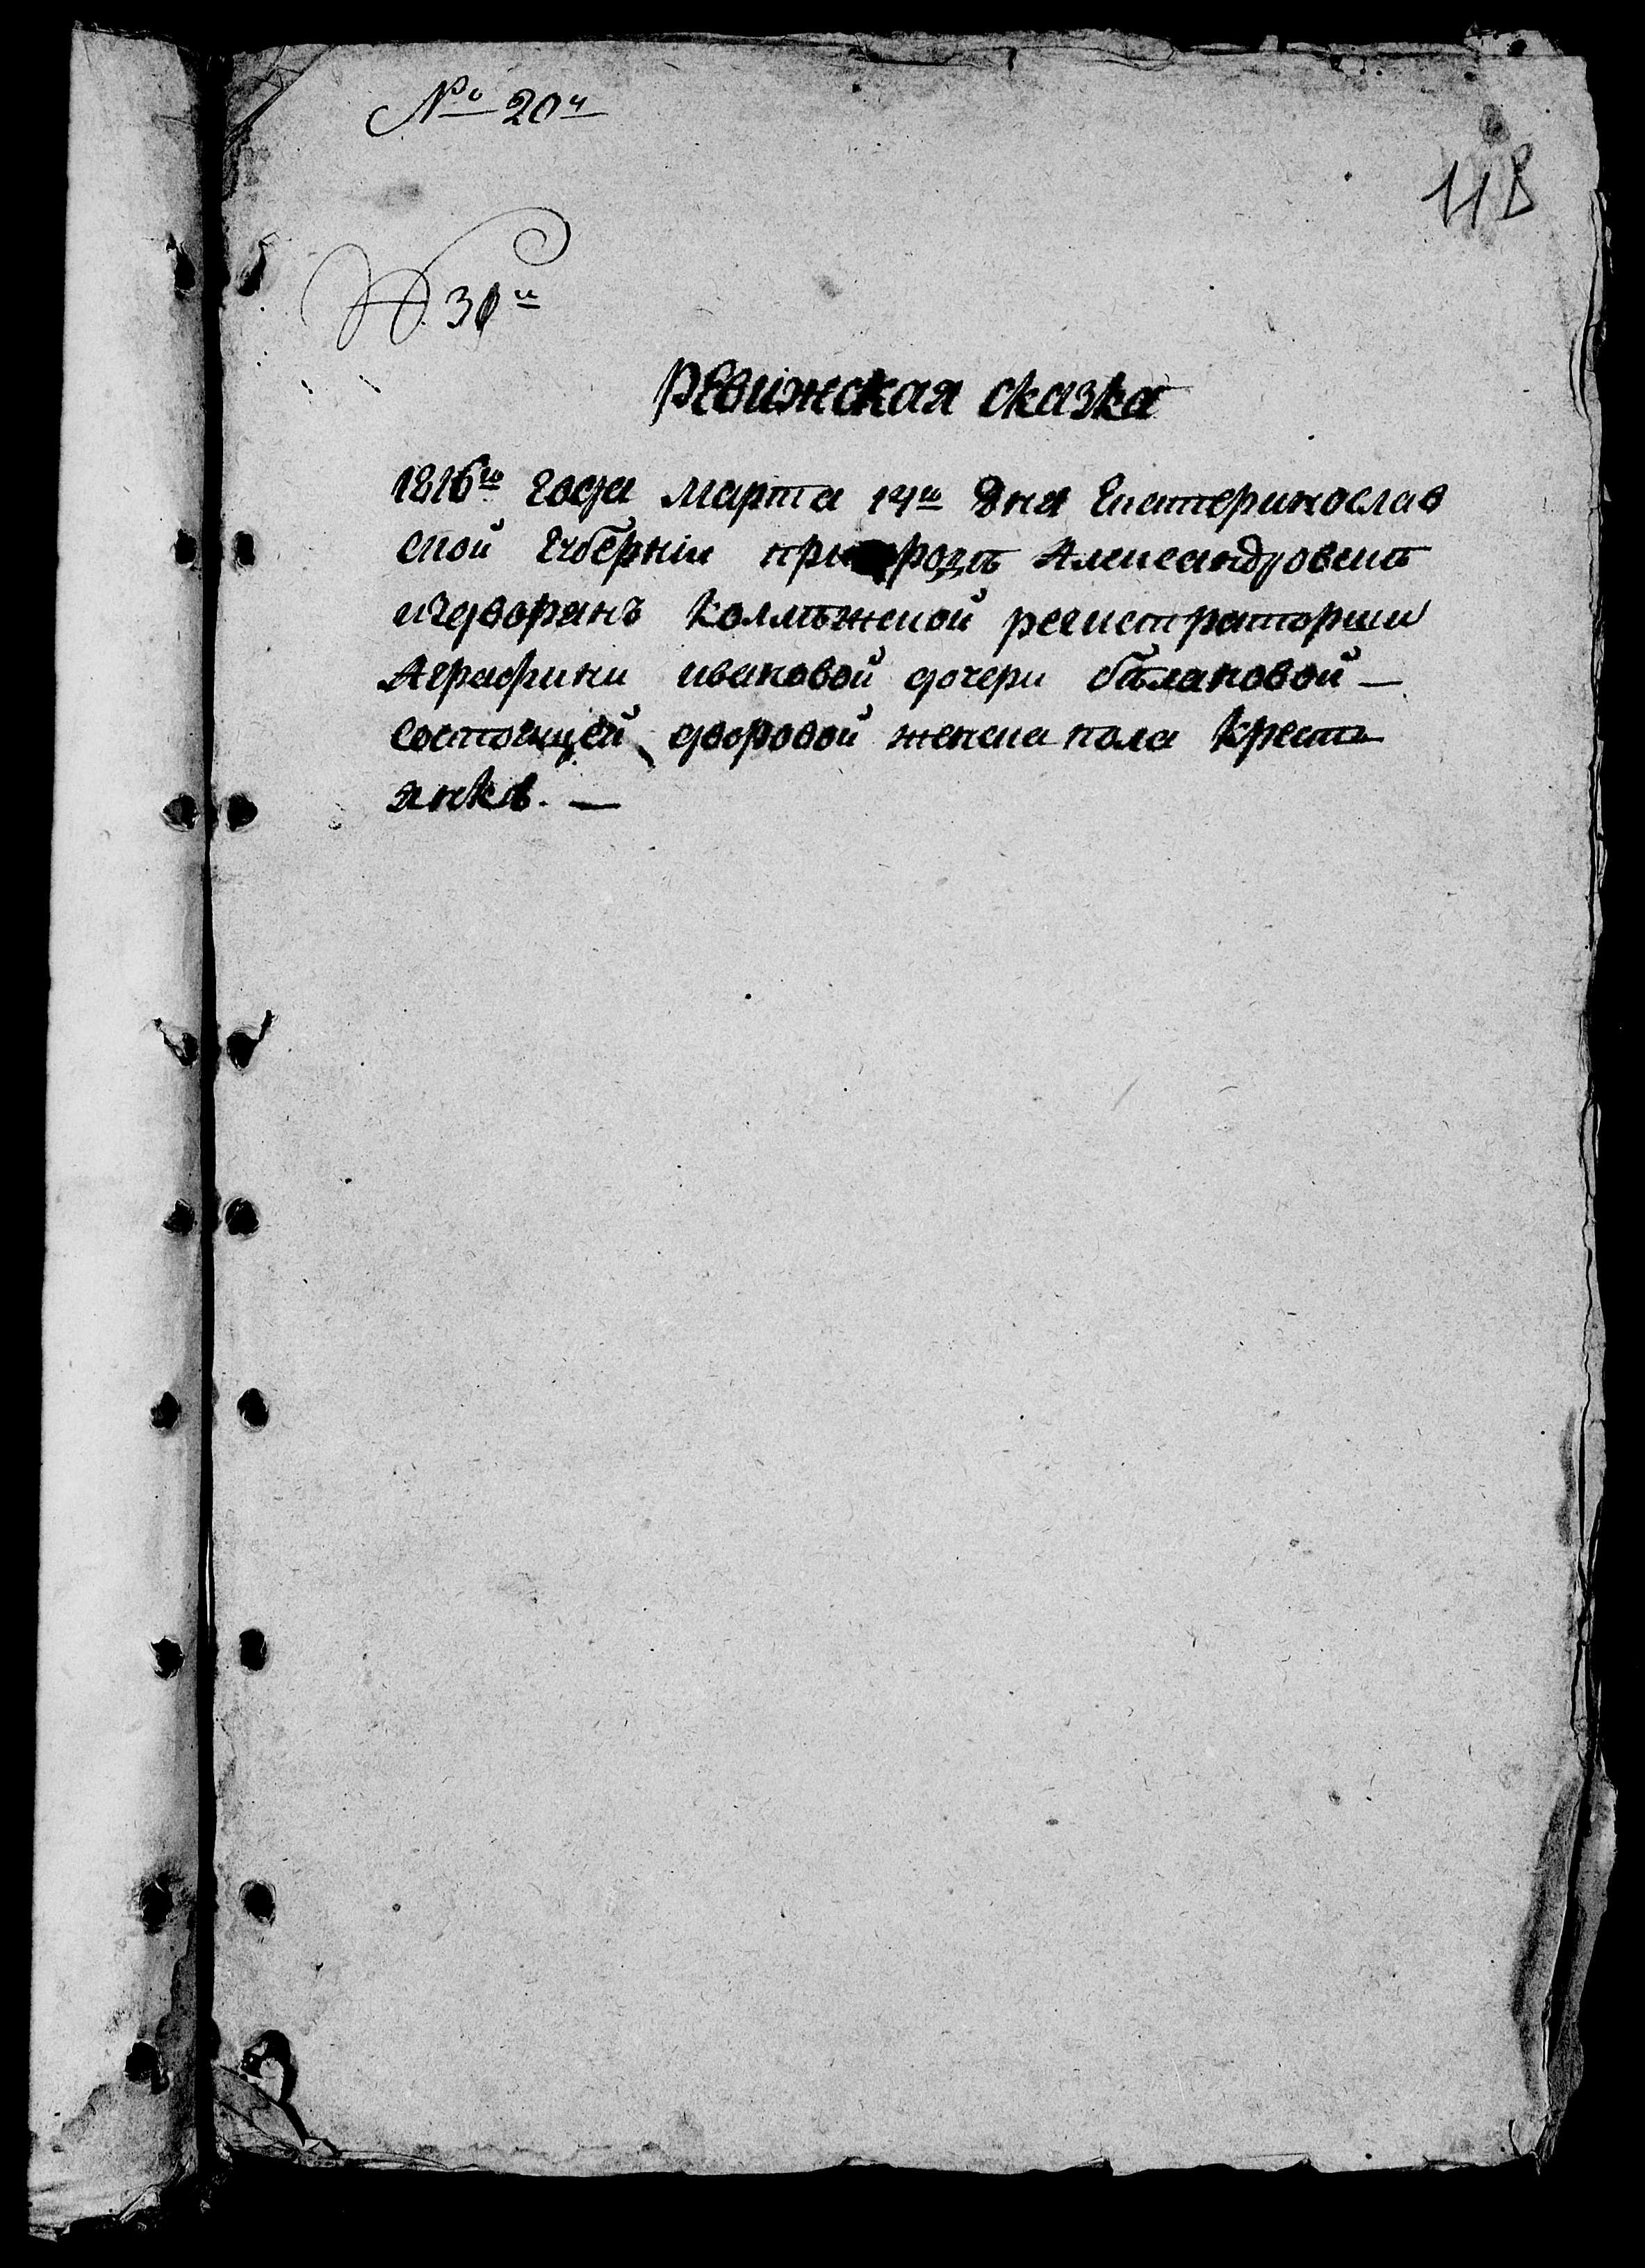 № 20й
118
№ 30й
Ревижская сказка
1816го года марта 14го дня Екатеринослав
ской губерніи при городѣ Александровскѣ
издворянъ коллѣжской регистраторши
Аграфини ивановой дочери балановой —
состоящей дворовой женска пола кресть
янкѣ. —